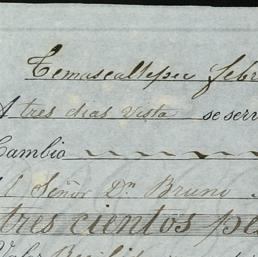 Temascaltepec febr
A tres dias vista se serv
Cambio
Señor Dn Bruno
tres cientos pe
Valor Recibi